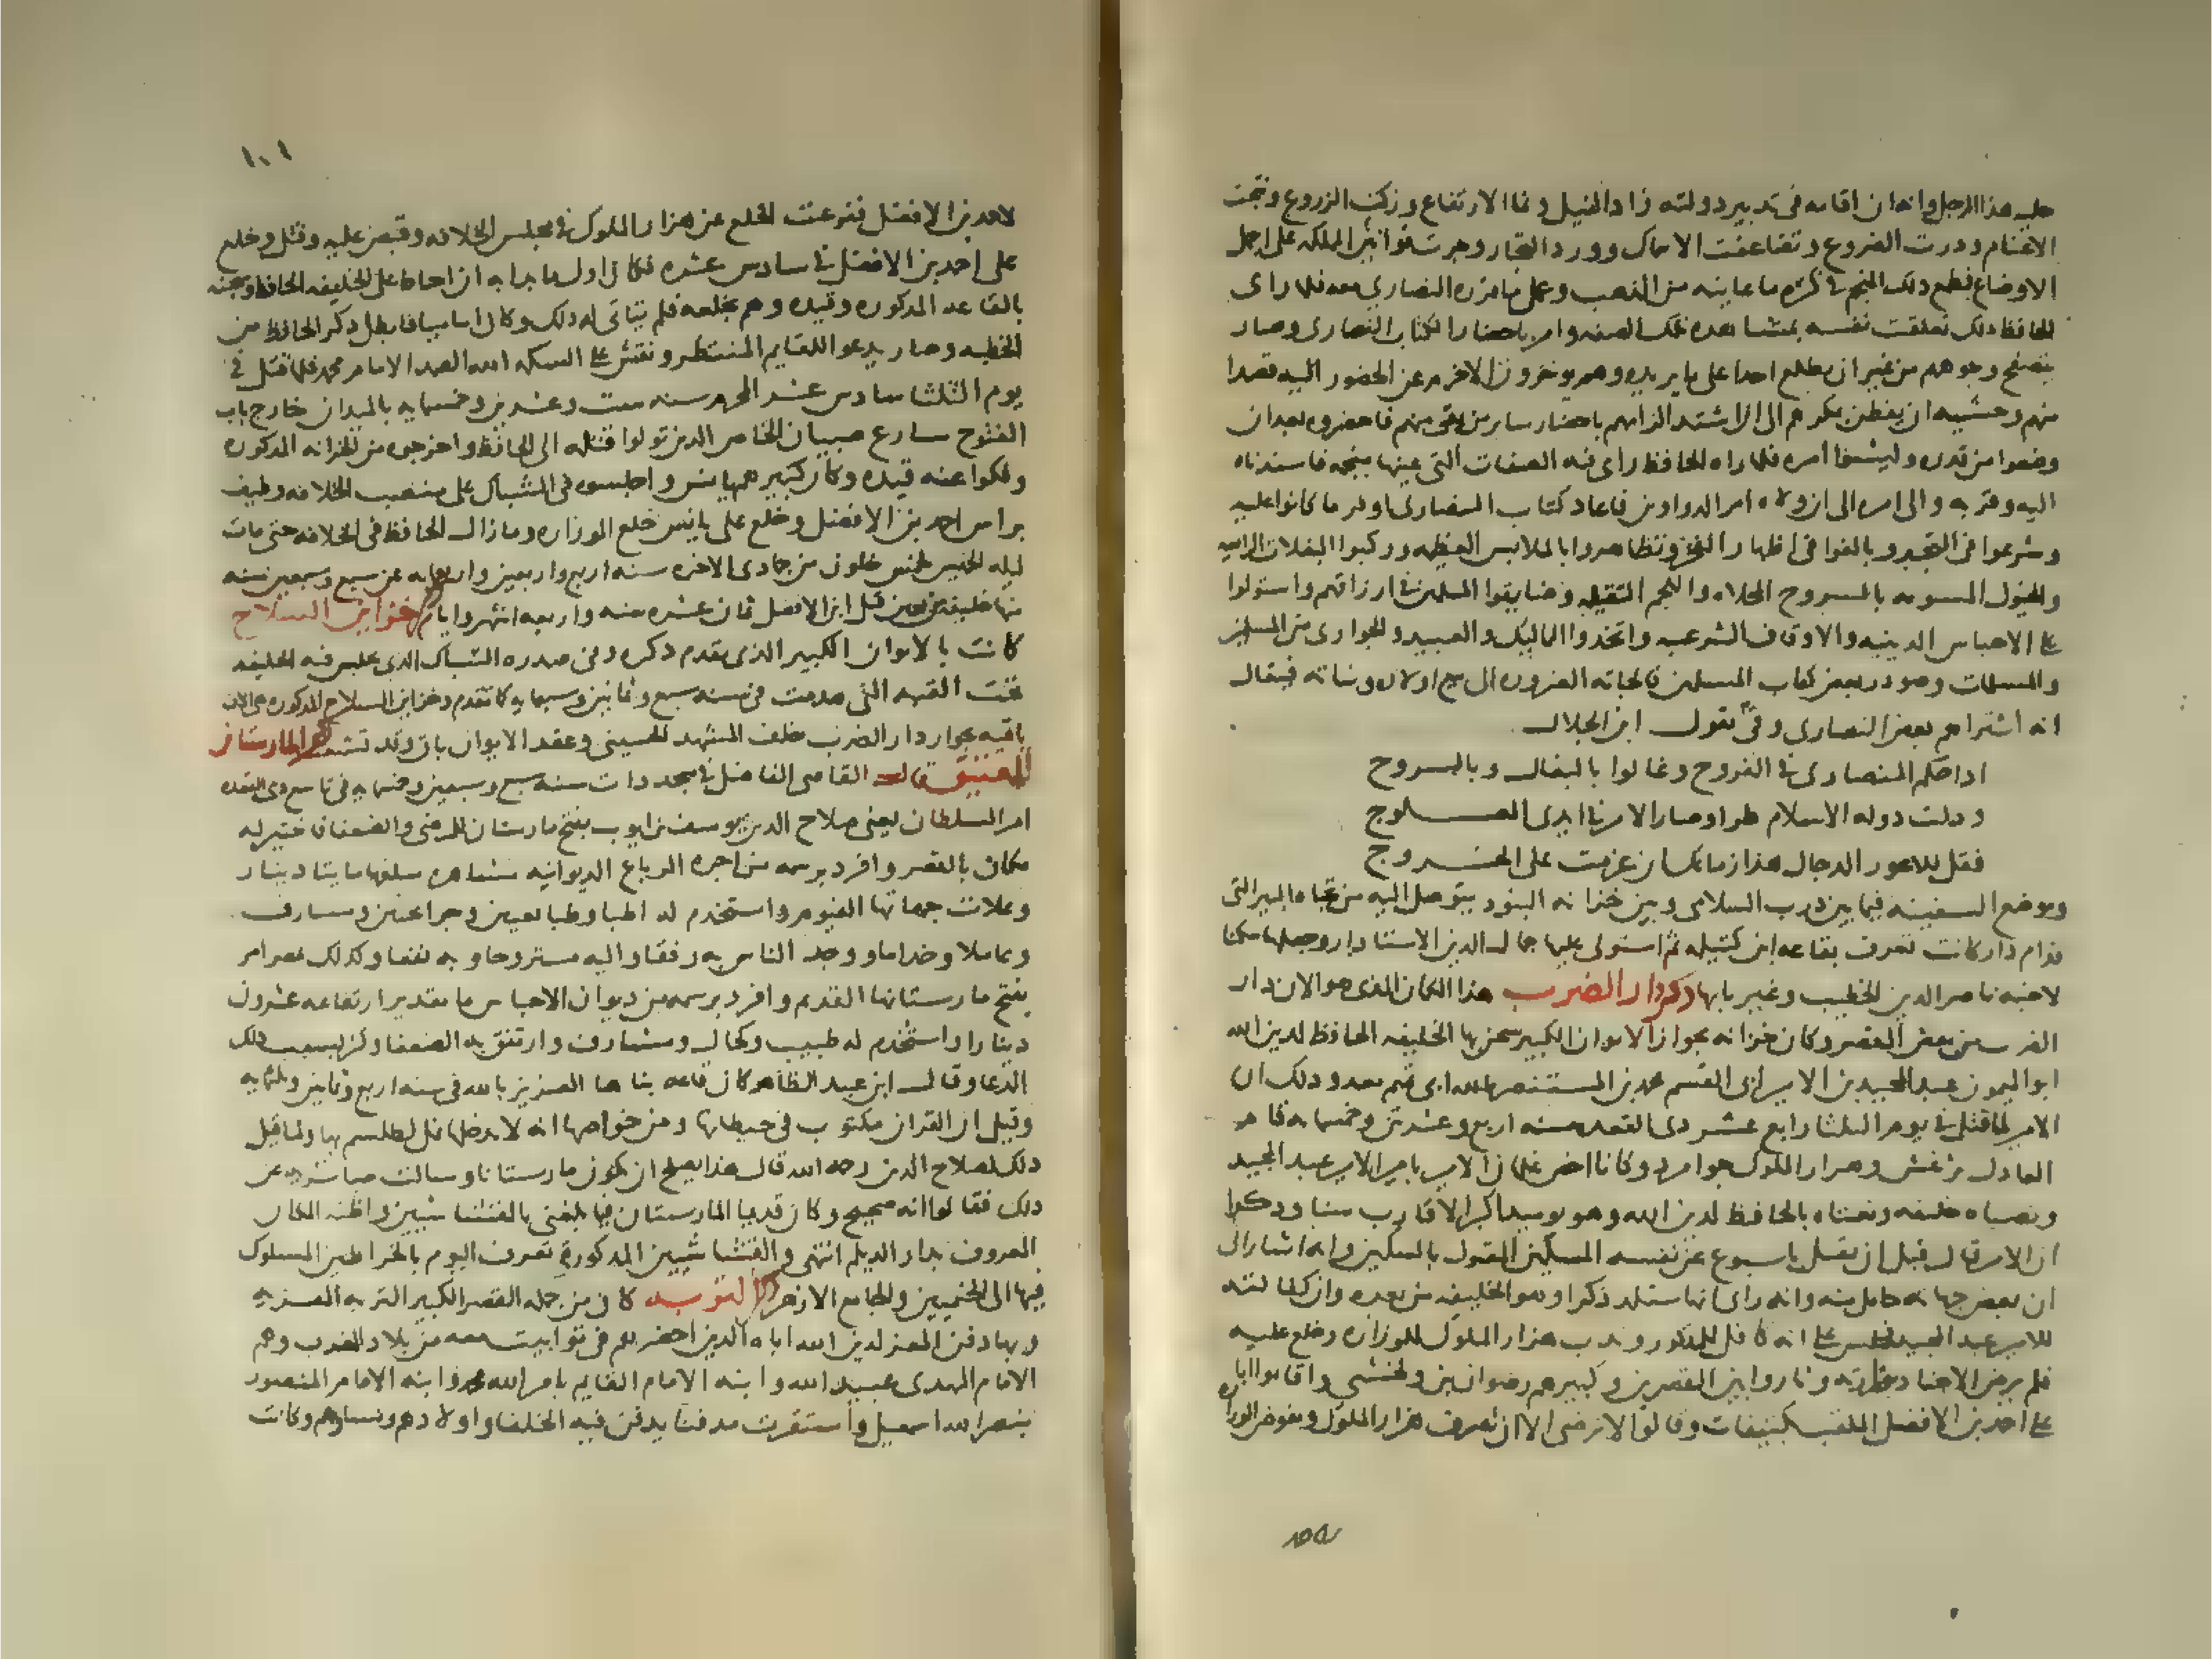 حليه هذا الرجل وانه ان اقامه فى تدبير دولته زاد النيل ونما الارتفاع وزكت الزروع ونتجت
الاغنام ودرت الضروع وتضاعفت الاسماك وورد التجار وجرت قوانين المملكه على اجمل
الاوضاع فطمع ذلك المنجم فى كثره ما عاينه من الذهب وعمل ما قرره النصارى معه فلما راى
الحافظ ذلك تعلقت نفسه بمشاهده تلك الصفه وامر باحضار الكتاب النصارى وصار
يتصفح وجوههم من غير ان يطلع احدا على ما يريده وهم يوخرون الاخرم عن الحضور اليه قصدا
منهم وخشيه ان يفطن بمكرهم الى ان اشتد الزامهم باحضار ساير من بقى منهم فاحضروه بعد ان
وضعوا من قدره وليشفوا امره فلما راه الحافظ راى فيه الصفات التى عينها منجمه فاستدناه
اليه وقربه والى امره الى ان ولاه امر الدواوين فاعاد كتاب النصارى اوفر ما كانوا عليه
وشرعوا فى التجبر وبالغوا فى اظهار الفخر وتظاهروا بالملابس العظيمه وركبوا البغلات الرايعه
والخيول المسومه بالسروج المحلاه واللجم الثقيله وضايقوا المسلمين فى ارزاقهم واستولوا
على الاحباس الدينيه والاوقاف الشرعيه واتخذوا المماليك والعبيد والجوارى من المسلمين
والمسلمات وصودر بعض كتاب المسلمين فالجاته الضروره الى بيع اولاده وبناته فيقال
انه اشتراهم بعض النصارى وفى يقول ابن الخلال
اذا حكم النصارى فى الفروج وغالوا بالبغال وبالسروج
وذلت دوله الاسلام طرا وصار الامر فى ايدى العلوج
فقل للاعور الدجال هذا زمانك ان عزمت على الخروج
وموضع السفينه فيما بين درب السلامى وبين خزانه البنود يتوصل اليه من تجاه البير التى
قدام دار كانت تعرف بقاعه ابن كتيله ثم استولى عليها جمال الدين الاستادار وجعلها سكنا
لاخيه ناصر الدين الخطيب وغير بابها ذكر دار الضرب هذا المكان الذى هو الان دار
الضرب من بعض القصر وكان خزانه بجوار الايوان الكبير سجن بها الخليفه الحافظ لدين الله
ابو الميمون عبد المجيد بن الامير ابى القسم محمد بن المستنصر بالله ابى تميم معد وذلك ان
الامر لما قتل فى يوم الثلثا رابع عشر ذى القعده سنه اربع وعشرين وخمسمايه قام
العادل بزغش وهزار الملوك جوامرد وكانا اخص غلمان الامر بامر الامير عبد المجيد
ونصباه خليفه ونعتاه بالحافظ لدين الله وهو يوميذ اكبر الاقارب سنا وذكرا
ان الامر قال قبل ان يقتل باسبوع عن نفسه المسكين المقتول بالسكين وانه اشار الى
ان بعض جهاته حامل منه وانه راى انها ستلد ذكرا وهو الخليفه من بعده وان كفالته
للامير عبد المجيد فجلس على انه كافل للمذكور وندب هزار الملوك للوزاره وخلع عليه
فلم يرض الاجناد به وثاروا بين القصرين وكبيرهم رضوان بن ولخشى وقاموا بابى
على احمد بن الافضل الملقب بكتيفات وقالوا لا نرضى الا ان نصرف هزار الملوك ونفوض الوزاره
١٠١
لاحمد بن الافضل فنزعت الخلع عن هزار الملوك فى مجلس الخلافه وقبض عليه وقتل وخلع
على احمد بن الافضل فى سادس عشره فكان اول ما بدا به ان احاط على الخليفه الحافظ وسجنه
بالقاعه المذكوره وقيده وهم بخلعه فلم يتاتى له ذلك وكان اماميا فابطل ذكر الحافظ من
الخطبه وصار يدعو للقايم المنتظر ونقش على السكه الله الصمد الامام محمد فلما قتل فى
يوم الثلثا سادس عشر المحرم سنه ست وعشرين وخمسمايه بالميدان خارج باب
الفتوح سارع صبيان الخاص الذين تولوا قتله الى الحافظ واخرجوه من الخزانه المذكوره
وفكوا عنه قيده وكان كبيرهم يانس واجلسوه فى الشباك على منصب الخلافه وطيف
براس احمد بن الافضل وخلع على يانس خلع الوزاره ومازال الحافظ فى الخلافه حتى مات
ليله الخميس لخمس خلون من جمادى الاخره سنه اربع واربعين واربعمايه عن سبع وسبعين سنه
منها خليفه من حين قتل ابن الافضل ثمان عشره سنه واربعه اشهر وايام ذكر خزاين السلاح
كانت بالايوان الكبير الذى تقدم ذكره وفى صدره الشباك الذى يجلس فيه الخليفه
تحت القبه التى هدمت فى سنه سبع وثمانين وسبعمايه كما تقدم وخزاين السلاح المذكوره هى الان
باقيه بجوار دار الضرب خلف المشهد الحسينى وعقد الايوان باق وقد تشعث ذكر المارستان
العتيق قال القاضى الفاضل فى متجددات سنه سبع وسبعين وخمسمايه فى تاسع ذى القعده
امر السلطان يعنى صلاح الدين يوسف بن ايوب بفتح مارستان للمرضى والضعفا فاختير له
مكان بالقصر وافرد برسمه من اجره الرباع الديوانيه مشاهره مبلغها مايتا دينار
وغلات جهاتها الفيوم واستخدم له اطبا وطبايعين وجراحين ومشارف
وعاملا وخداما ووجد الناس به رفقا واليه مستروحا وبه نفعا وكذلك بمصر امر
بفتح مارستانها القديم وافرد برسمه من ديوان الاحباس ما تقدير ارتفاعه عشرون
دينارا واستخدم له طبيب وكحال ومشارف وارتفق به الضعفا وكثر بسبب ذلك
الدعا وقال ابن عبد الظاهر كان قاعه بناها العزيز بالله فى سنه اربع وثمانين وثلثمايه
وقيل ان القران مكتوب فى حيطانها ومن خواصها انه لا يدخلها نمل لطلسم بها ولما قيل
ذلك لصلاح الدين رحمه الله قال هذا يصلح ان يكون مارستانا وسالت مباشريه عن
ذلك فقالوا انه صحيح وكان قديما المارستان فيما بلغنى بالقشاشين واظنه المكان
المعروف بدار الديلم انتهى والقشاشين المذكورة تعرف اليوم بالخراطين المسلوك
فيها الى الخيميين والجامع الازهر ذكر التربه كان من جمله القصر الكبير التربه المعزيه
وبها دفن المعز لدين الله اباه الذين احضرهم فى توابيت معه من بلاد المغرب وهم
الامام المهدى عبيد الله وابنه الامام القايم بامر الله محمد وابنه الامام المنصور
بنصر الله اسمعيل واستقرت مدفنا يدفن فيه الخلفا واولادهم ونساوهم وكانت